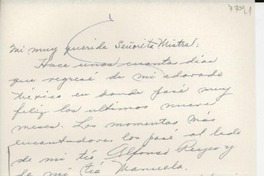 Mi muy querida Señorita Mistral:
Hace unos cuanto dias
que regresé de mi adorado
México en donde pasé muy
feliz los ultimos nueve
meses. Los momentos más
encantadores los pasé al lado
de mi tío Alfonso Reyes y
de mi tía Manuela